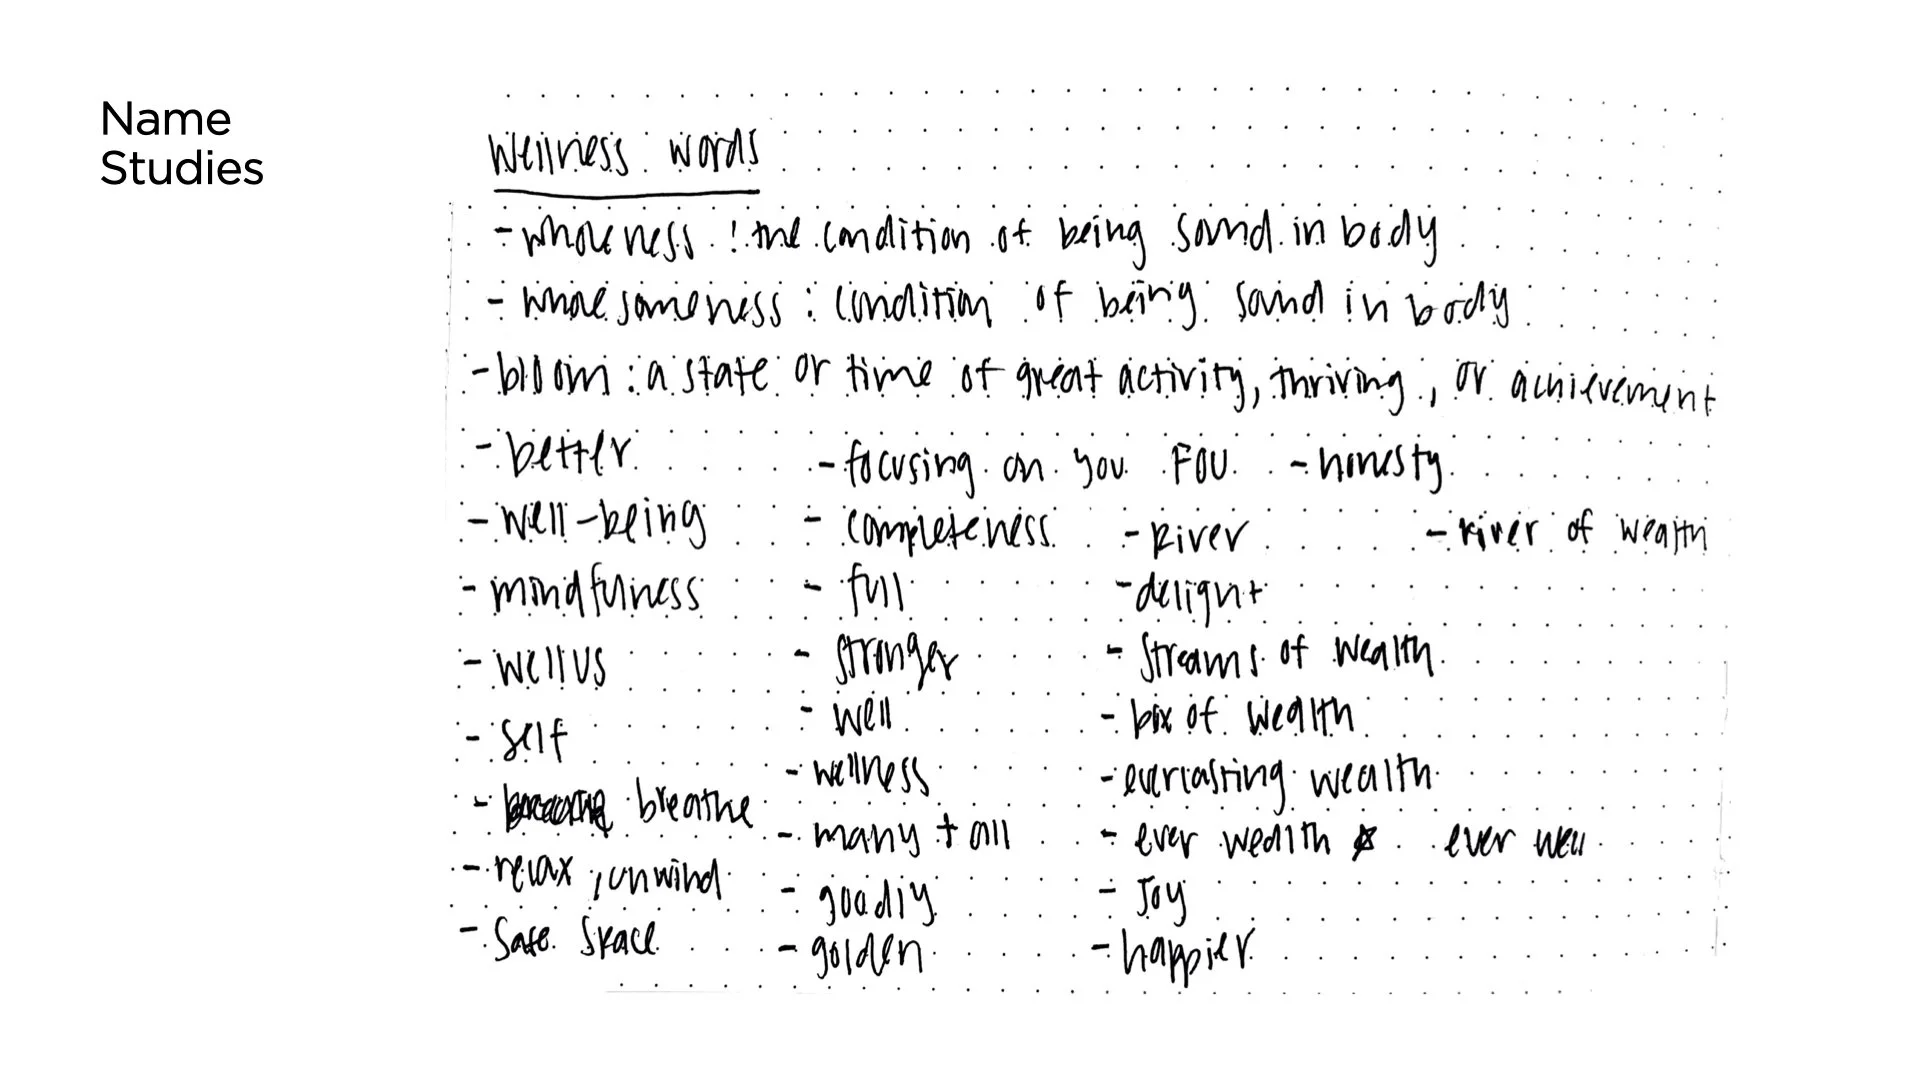 Name
Studies
Wellness words
- wholeness : the condition of being sound in body
- wholesomeness : condition of being sound in body
- bloom : a state or time of great activity, thriving, or achievement
- better - focusing on you FOU - honesty
- well-being - completeness - River - river of wealth
- mindfulness - full - delight
- wellus - stronger - Streams of wealth
- self - well - box of wealth
- breathe - wellness - everlasting wealth
- relax, unwind - many + all - ever wealth ever well
- Safe Space - goodly - Joy
- golden - happier